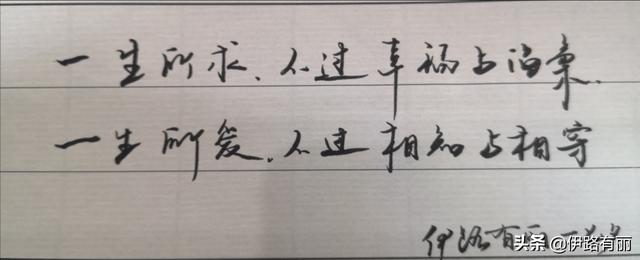 一生所求、不过幸福与温柔.
一生所爱、不过相知与相守
伊路有
头条 @伊路有丽